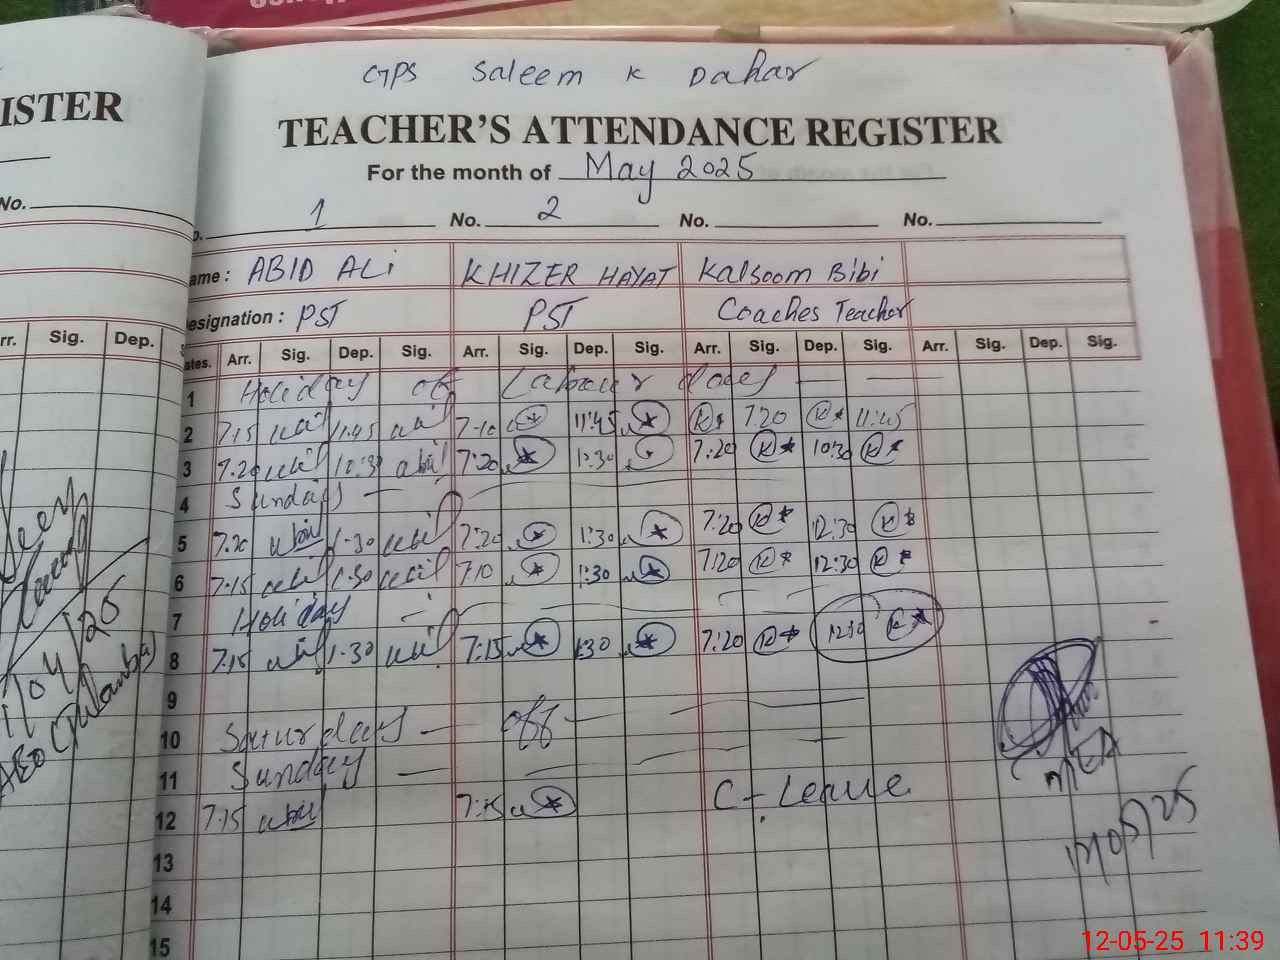 GPS Saleem K Dahar
ISTER
TEACHER'S ATTENDANCE REGISTER
For the month of May 2025
No. 1 No. 2 No. No.
ame : ABID ALi KHIZER HAYAT Kalsoom Bibi
esignation : PST PST Coaches Teacher
rr. Sig. Dep. ates. Arr. Sig. Dep. Sig. Arr. Sig. Dep. Sig. Arr. Sig. Dep. Sig. Arr. Sig. Dep. Sig.
1 Holiday off Labour
2 7.15 11.45 7-10 11:45 7:20 11:45
3 7.20 7:20 7:20 10:30
4 Sunday
5 7.20 1.30 7:20 1:30 7:20 12:30
6 7:15 1:30 7:10 1:30 7:20 12:30
7 Holiday
8 7.15 1.30 7:15 1:30 7:20 1230
9
10 Saturday off
11 Sunday
12 7.15 7:15 C-Leave
13
14
15
12-05-25 11:39